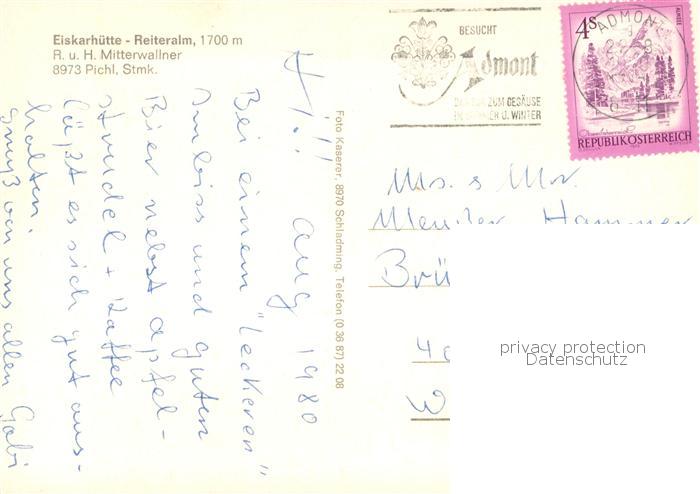 Eiskarhütte - Reiteralm, 1700 m
R. u. H. Mitterwallner
8973 Pichl, Stmk.
BESUCHT
Admont
DAS TOR ZUM GESÄUSE
IN SOMMER U. WINTER
ADMONT
4S
ALMSEE
REPUBLIK ÖSTERREICH
Hi!! Aug 1980
Bei einem "leckeren"
Imbiss und guten
Bier nebst Apfel-
strudel + Kaffee
läßt es sich gut aus-
halten.
Gruß von uns allen Gabi
Foto Kaserer, 8970 Schladming, Telefon (0 36 87) 22 08
Ms. & Mr.
Hammer
Brü
W
privacy protection
Datenschutz